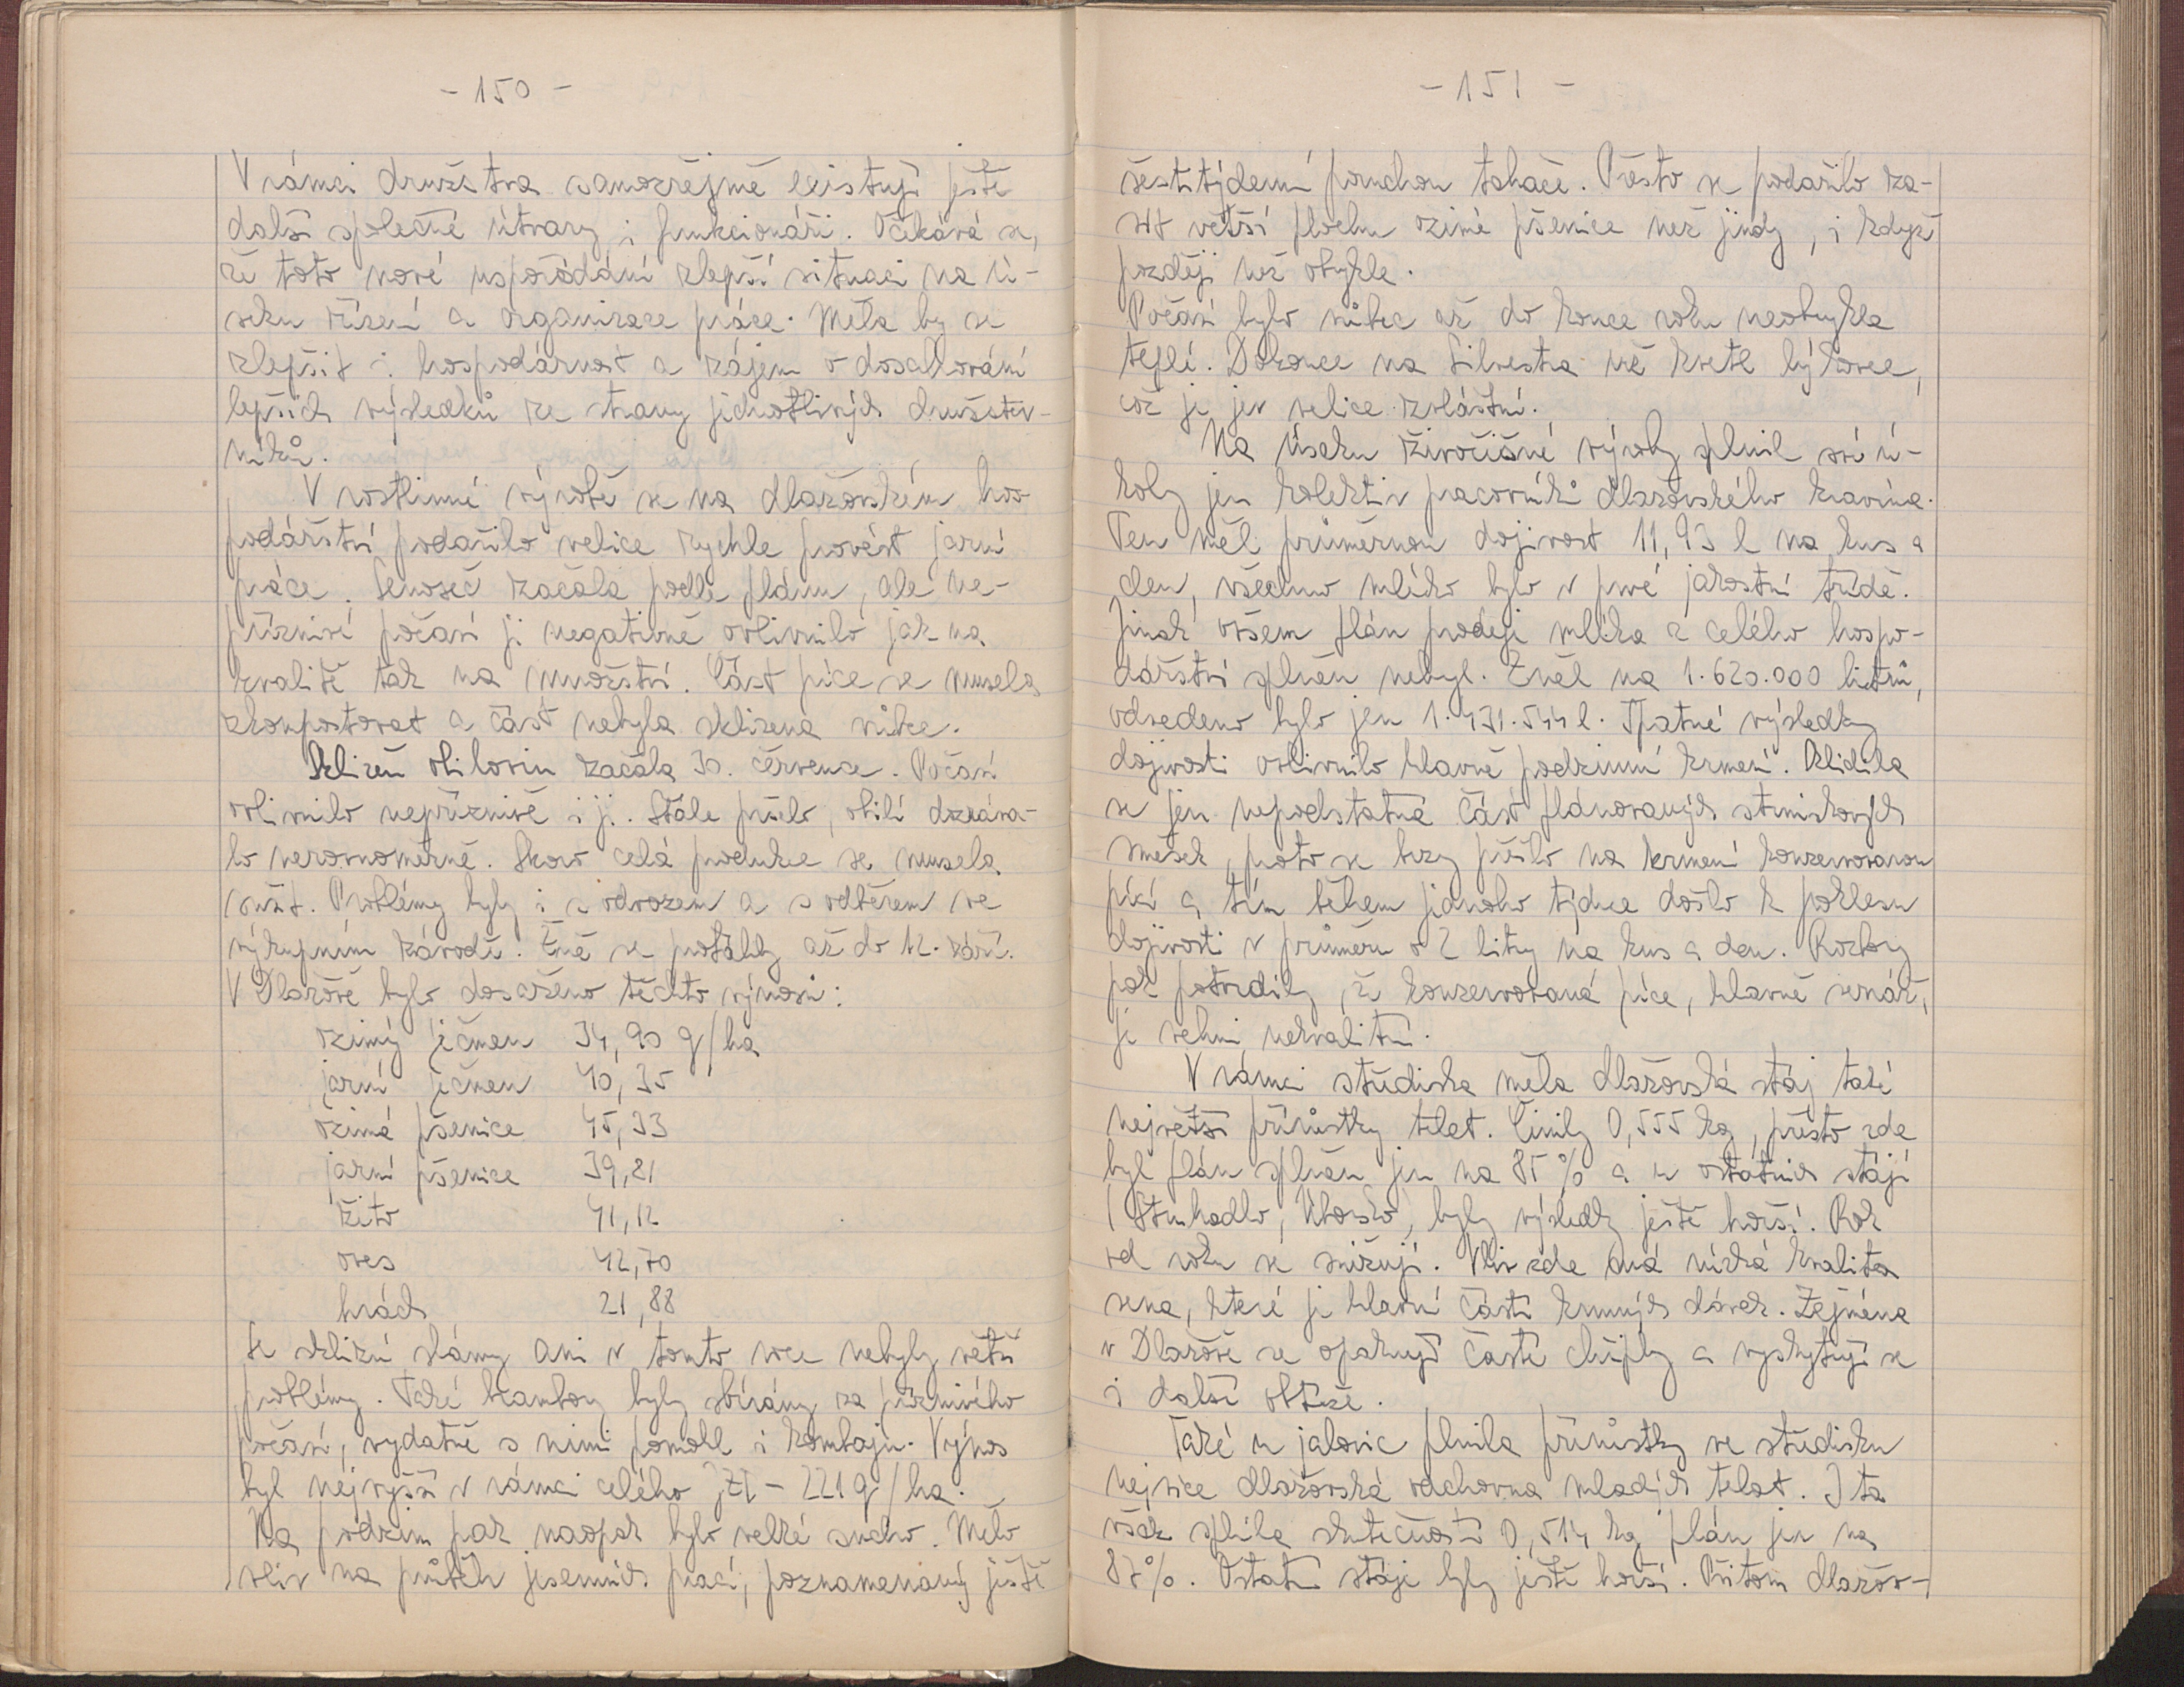 - 150 -
V rámci družstva samozřejmě existují ještě
další společné útvary i funkcionáři. Očekává se,
že toto nové uspořádání zlepší situaci na ú-
seku řízení a organizace práce. Měla by se
zlepšit i hospodárnost a zájem o dosahování
lepších výsledků ze strany jednotlivých družstev-
níků.
V rostlinné výrobě se na dlažovském hos
podářství podařilo velice rychle provést jarní
práce. Senoseč začala podle plánu, ale ne-
příznivé počasí ji negativně ovlivnilo jak na
kvalitě tak na množství. Část píce se musela
zkompostovat a část nebyla sklizena vůbec.
Sklizeň obilovin začala 30. července. Počasí
ovlivnilo nepříznivě i ji. Stále pršelo, obilí dozráva-
lo nerovnoměrně. Skoro celá produkce se musela
sušit. Problémy byly i s odvozem a s odběrem ve
výkupním závodě. Žně se protáhly až do 12. září.
V Dlažově bylo dosaženo těchto výnosů:
ozimý ječmen 34,90 q/ha
jarní ječmen 40,35
ozimá pšenice 45,33
jarní pšenice 39,21
žito 41,12
oves 42,70
hrách 21,88
Se sklizní slámy ani v tomto roce nebyly větší
problémy. Také brambory byly sbírány za příznivého
počasí, vydatně s nimi pomohl i kombajn. Výnos
byl nejvyšší v rámci celého JZD - 221 q/ha.
Na podzim pak naopak bylo velké sucho. Mělo
vliv na průběh jesenních prací, poznamenaný ještě
- 151 -
šestitýdenní poruchou tahače. Přesto se podařilo za-
sít větší plochu ozimé pšenice než jindy, i když
později než obykle.
Počasí bylo vůbec až do konce roku neobvykle
teplé. Dokonce na Silvestra už kvetl lýkovec,
což je jev velice zvláštní.
Na úseku živočišné výroby splnil své ú-
koly jen kolektiv pracovníků dlažovského kravína.
Ten měl průměrnou dojivost 11,93 l na kus a
den, všechno mléko bylo v prvé jakostní třídě.
Jinak ovšem plán prodeje mléka z celého hospo-
dářství splněn nebyl. Zněl na 1.620.000 litrů,
odvedeno bylo jen 1.431.544 l. Špatné výsledky
dojivosti ovlivnilo hlavně podzimní krmení. Sklidila
se jen nepodstatná část plánovaných strniskových
směsek, proto se brzy přešlo na krmení konzervovanou
pící a tím během jednoho týdne došlo k poklesu
dojivosti v průměru o 2 litry na kus a den. Rozbory
pak potvrdily, že konzervovaná píce, hlavně senáž,
je velmi nekvalitní.
V rámci střediska měla dlažovská stáj také
největší přírůstky telat. Činily 0,555 kg, přesto zde
byl plán splněn jen na 85 % a u ostatních stájí
(Struhadlo, Úborsko), byly výsledky ještě horší. Rok
od roku se snižují. Vliv zde má nízká kvalita
sena, které je hlavní částí krmných dávek. Zejména
v Dlažově se opakují časté chřipky a vyskytují se
i další obtíže.
Také u jalovic plnila přírůstky ve středisku
nejvíce dlažovská odchovna mladých telat. I ta
však splnila skutečností 0,514 kg plán jen na
87%. Ostatní stáje byly ještě horší. Přitom dlažov-